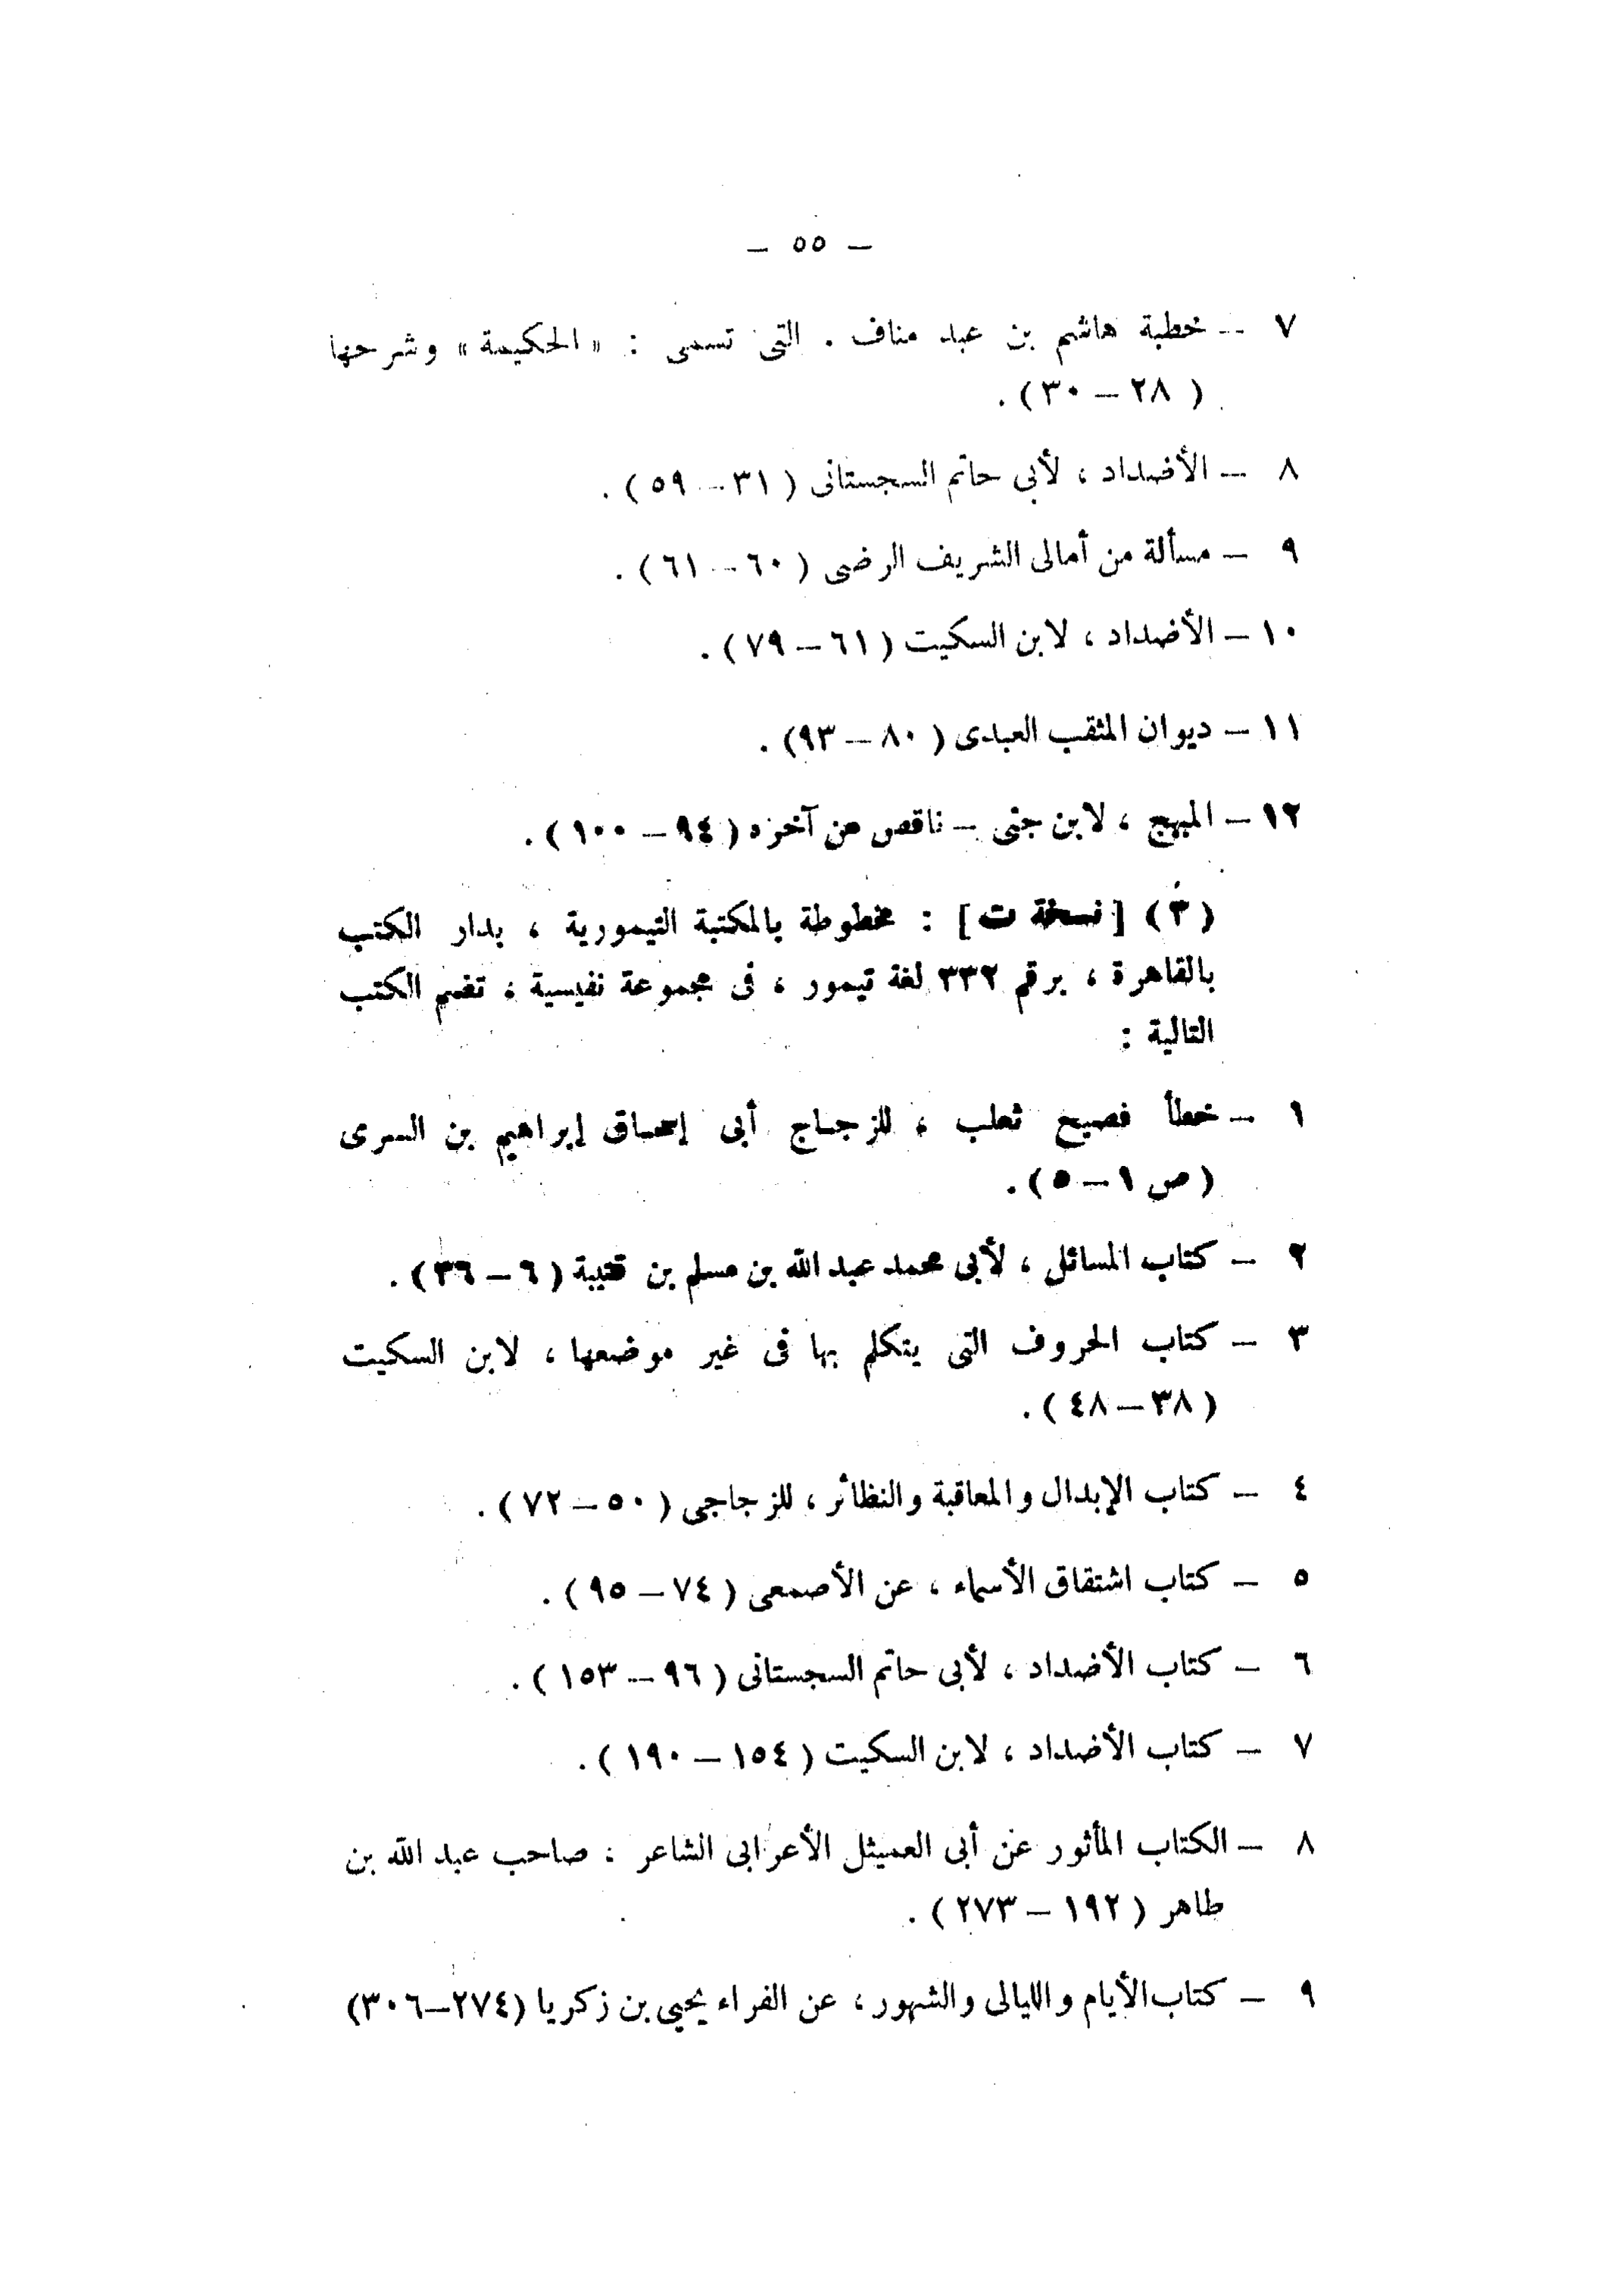 — ٥٥ —
٧ — خطبة هاشم بن عبد مناف . التى تسمى : « الحكيمة » وشرحها
( ٢٨ — ٣٠ ) .
٨ — الأضداد ، لأبى حاتم السجستانى ( ٣١ — ٥٩ ) .
٩ — مسألة من أمالى الشريف الرضى ( ٦٠ — ٦١ ) .
١٠ — الأضداد ، لابن السكيت ( ٦١ — ٧٩ ) .
١١ — ديوان المثقب العبدى ( ٨٠ — ٩٣ ) .
١٢ — المبهج ، لابن جنى — ناقص من آخره ( ٩٤ — ١٠٠ ) .
( ٣ ) [ نسخة ت ] : مخطوطة بالمكتبة التيمورية ، بدار الكتب
بالقاهرة ، برقم ٣٣٢ لغة تيمور ، فى مجموعة نفيسية ، تضم الكتب
التالية :
١ — خطأ فصيح ثعلب ، للزجاج أبى إسحاق إبراهيم بن السرى
( ص ١ — ٥ ) .
٢ — كتاب المسائل ، لأبى محمد عبد الله بن مسلم بن قتيبة ( ٦ — ٣٦ ) .
٣ — كتاب الحروف التى يتكلم بها فى غير موضعها ، لابن السكيت
( ٣٨ — ٤٨ ) .
٤ — كتاب الإبدال والمعاقبة والنظائر ، للزجاجى ( ٥٠ — ٧٢ ) .
٥ — كتاب اشتقاق الأسماء ، عن الأصمعى ( ٧٤ — ٩٥ ) .
٦ — كتاب الأضداد ، لأبى حاتم السجستانى ( ٩٦ — ١٥٣ ) .
٧ — كتاب الأضداد ، لابن السكيت ( ١٥٤ — ١٩٠ ) .
٨ — الكتاب المأثور عن أبى العميثل الأعرابى الشاعر ، صاحب عبد الله بن
طاهر ( ١٩٢ — ٢٧٣ ) .
٩ — كتاب الأيام والليالى والشهور ، عن الفراء يحيى بن زكريا ( ٢٧٤ — ٣٠٦ )